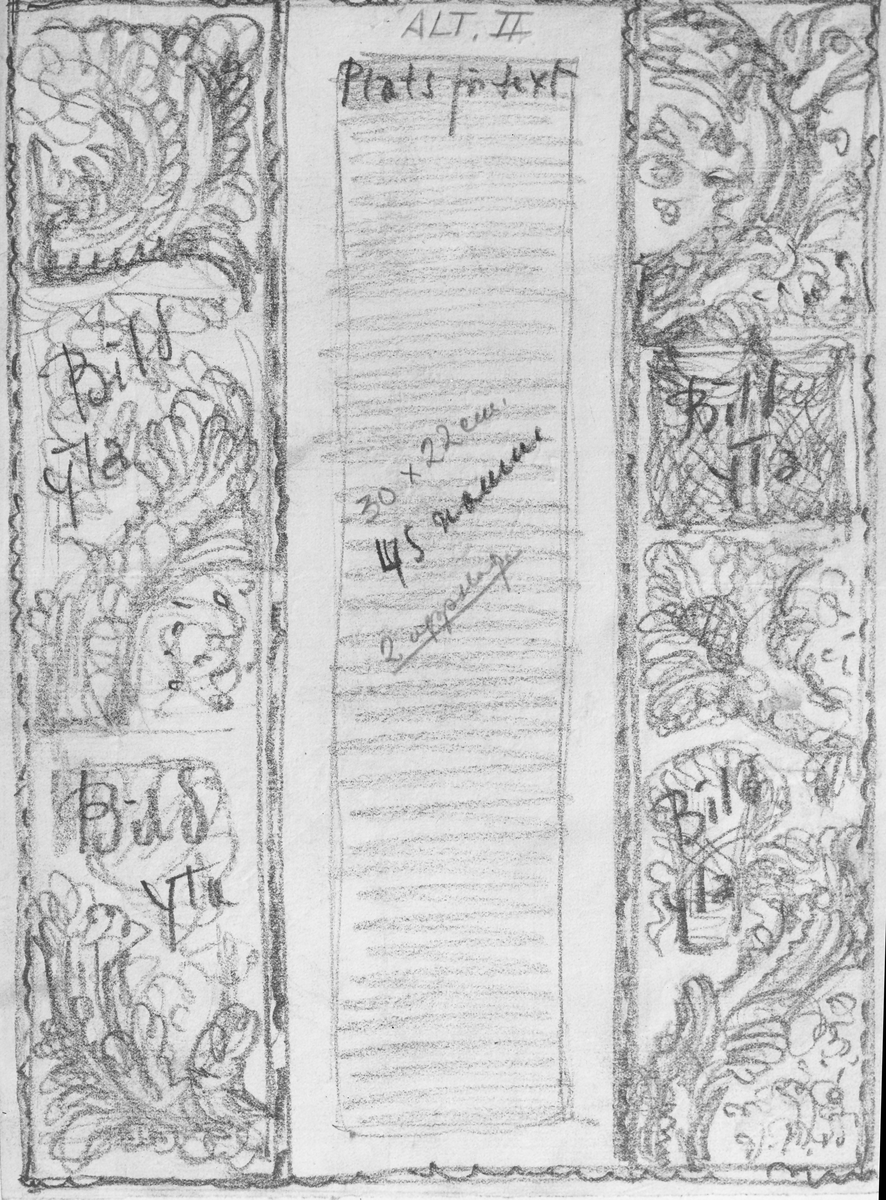 ALT. II
Plats för text
Bild
yta
Bild
yta
30 x 22 cm.
45
2
Bild
yta
Bild
yta